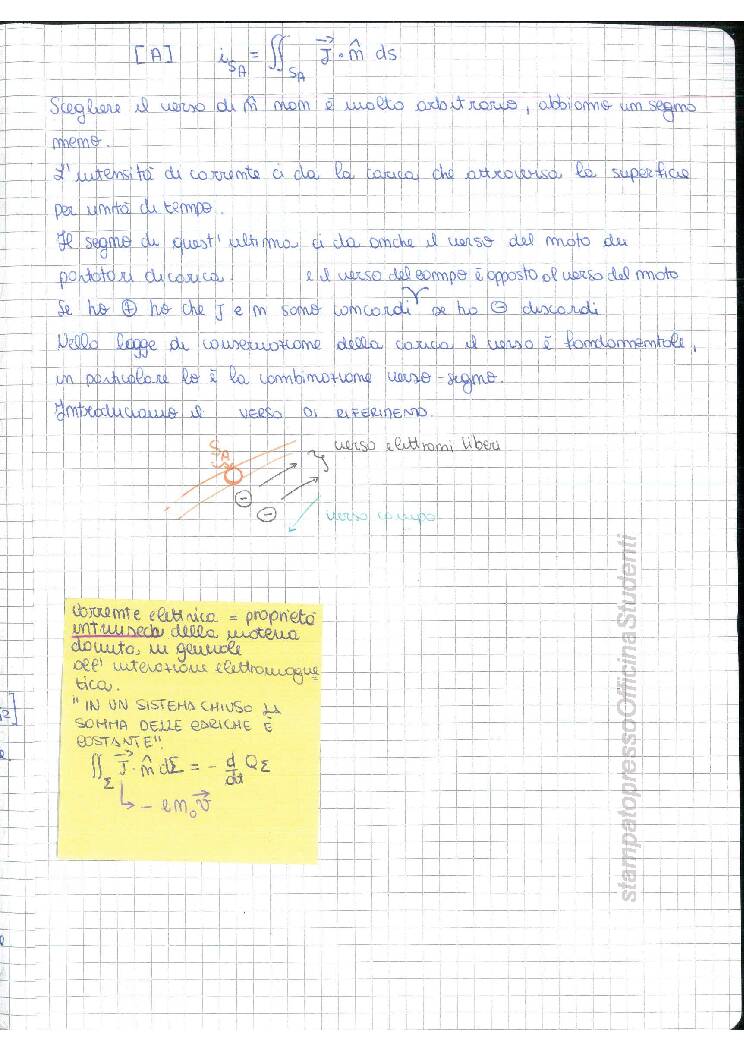 [A] i_{S_A} = ∬_{S_A} \vec{J} · \hat{m} ds
Scegliere il verso di \hat{m} non è molto arbitrario, abbiamo un segno
meno.
L'intensità di corrente ci da la carica che attraversa la superficie
per unità di tempo.
Il segno di quest'ultima ci da anche il verso del moto dei
portatori di carica. e il verso del campo è opposto al verso del moto
Se ho ⊕ ho che J e n sono concordi se ho ⊖ discordi
Nella legge di conservazione della carica il verso è fondamentale,
in particolare lo è la combinazione verso-segno.
Introduciamo il VERSO DI RIFERIMENTO.
S_A
verso elettroni liberi
verso campo
corrente elettrica = proprietà
intrinseca della materia
dovuta, in generale
all'interazione elettromagne
tica.
"IN UN SISTEMA CHIUSO LA
SOMMA DELLE CARICHE È
COSTANTE".
∬_Σ \vec{J} · \hat{m} dΣ = - d/dt Q_Σ
- e n_0 \vec{v}
stampatopressoOfficinaStudenti